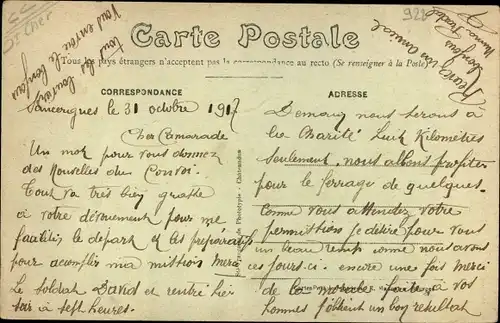 Dt Cher
922
Carte Postale
Tous les pays étrangers n'acceptent pas la correspondance au recto (Se renseigner à la Poste)
CORRESPONDANCE
Sancergues le 31 octobre 1917
Cher Camarade
Un mot pour vous donnez
des Nouvelles du Convoi.
Tout va très bien grathe
à votre dévouement pour me
facilités le départ et les préparatifs
pour acomplir ma mission Merci
Le soldat David et rentré hier
soir à sept heures.
ADRESSE
Demain nous serons à
la Charité huit Kilomètres
seulement. nous allons profiter
pour le ferrage de quelques.
Comme vous attendez votre
permission je désire pour vous
un beau temps comme nous avons
ces jours-ci. encore une fois Merci
de la morale faite à vos
hommes j'obtient un bon resultat
Recevez
mon amical
tous les